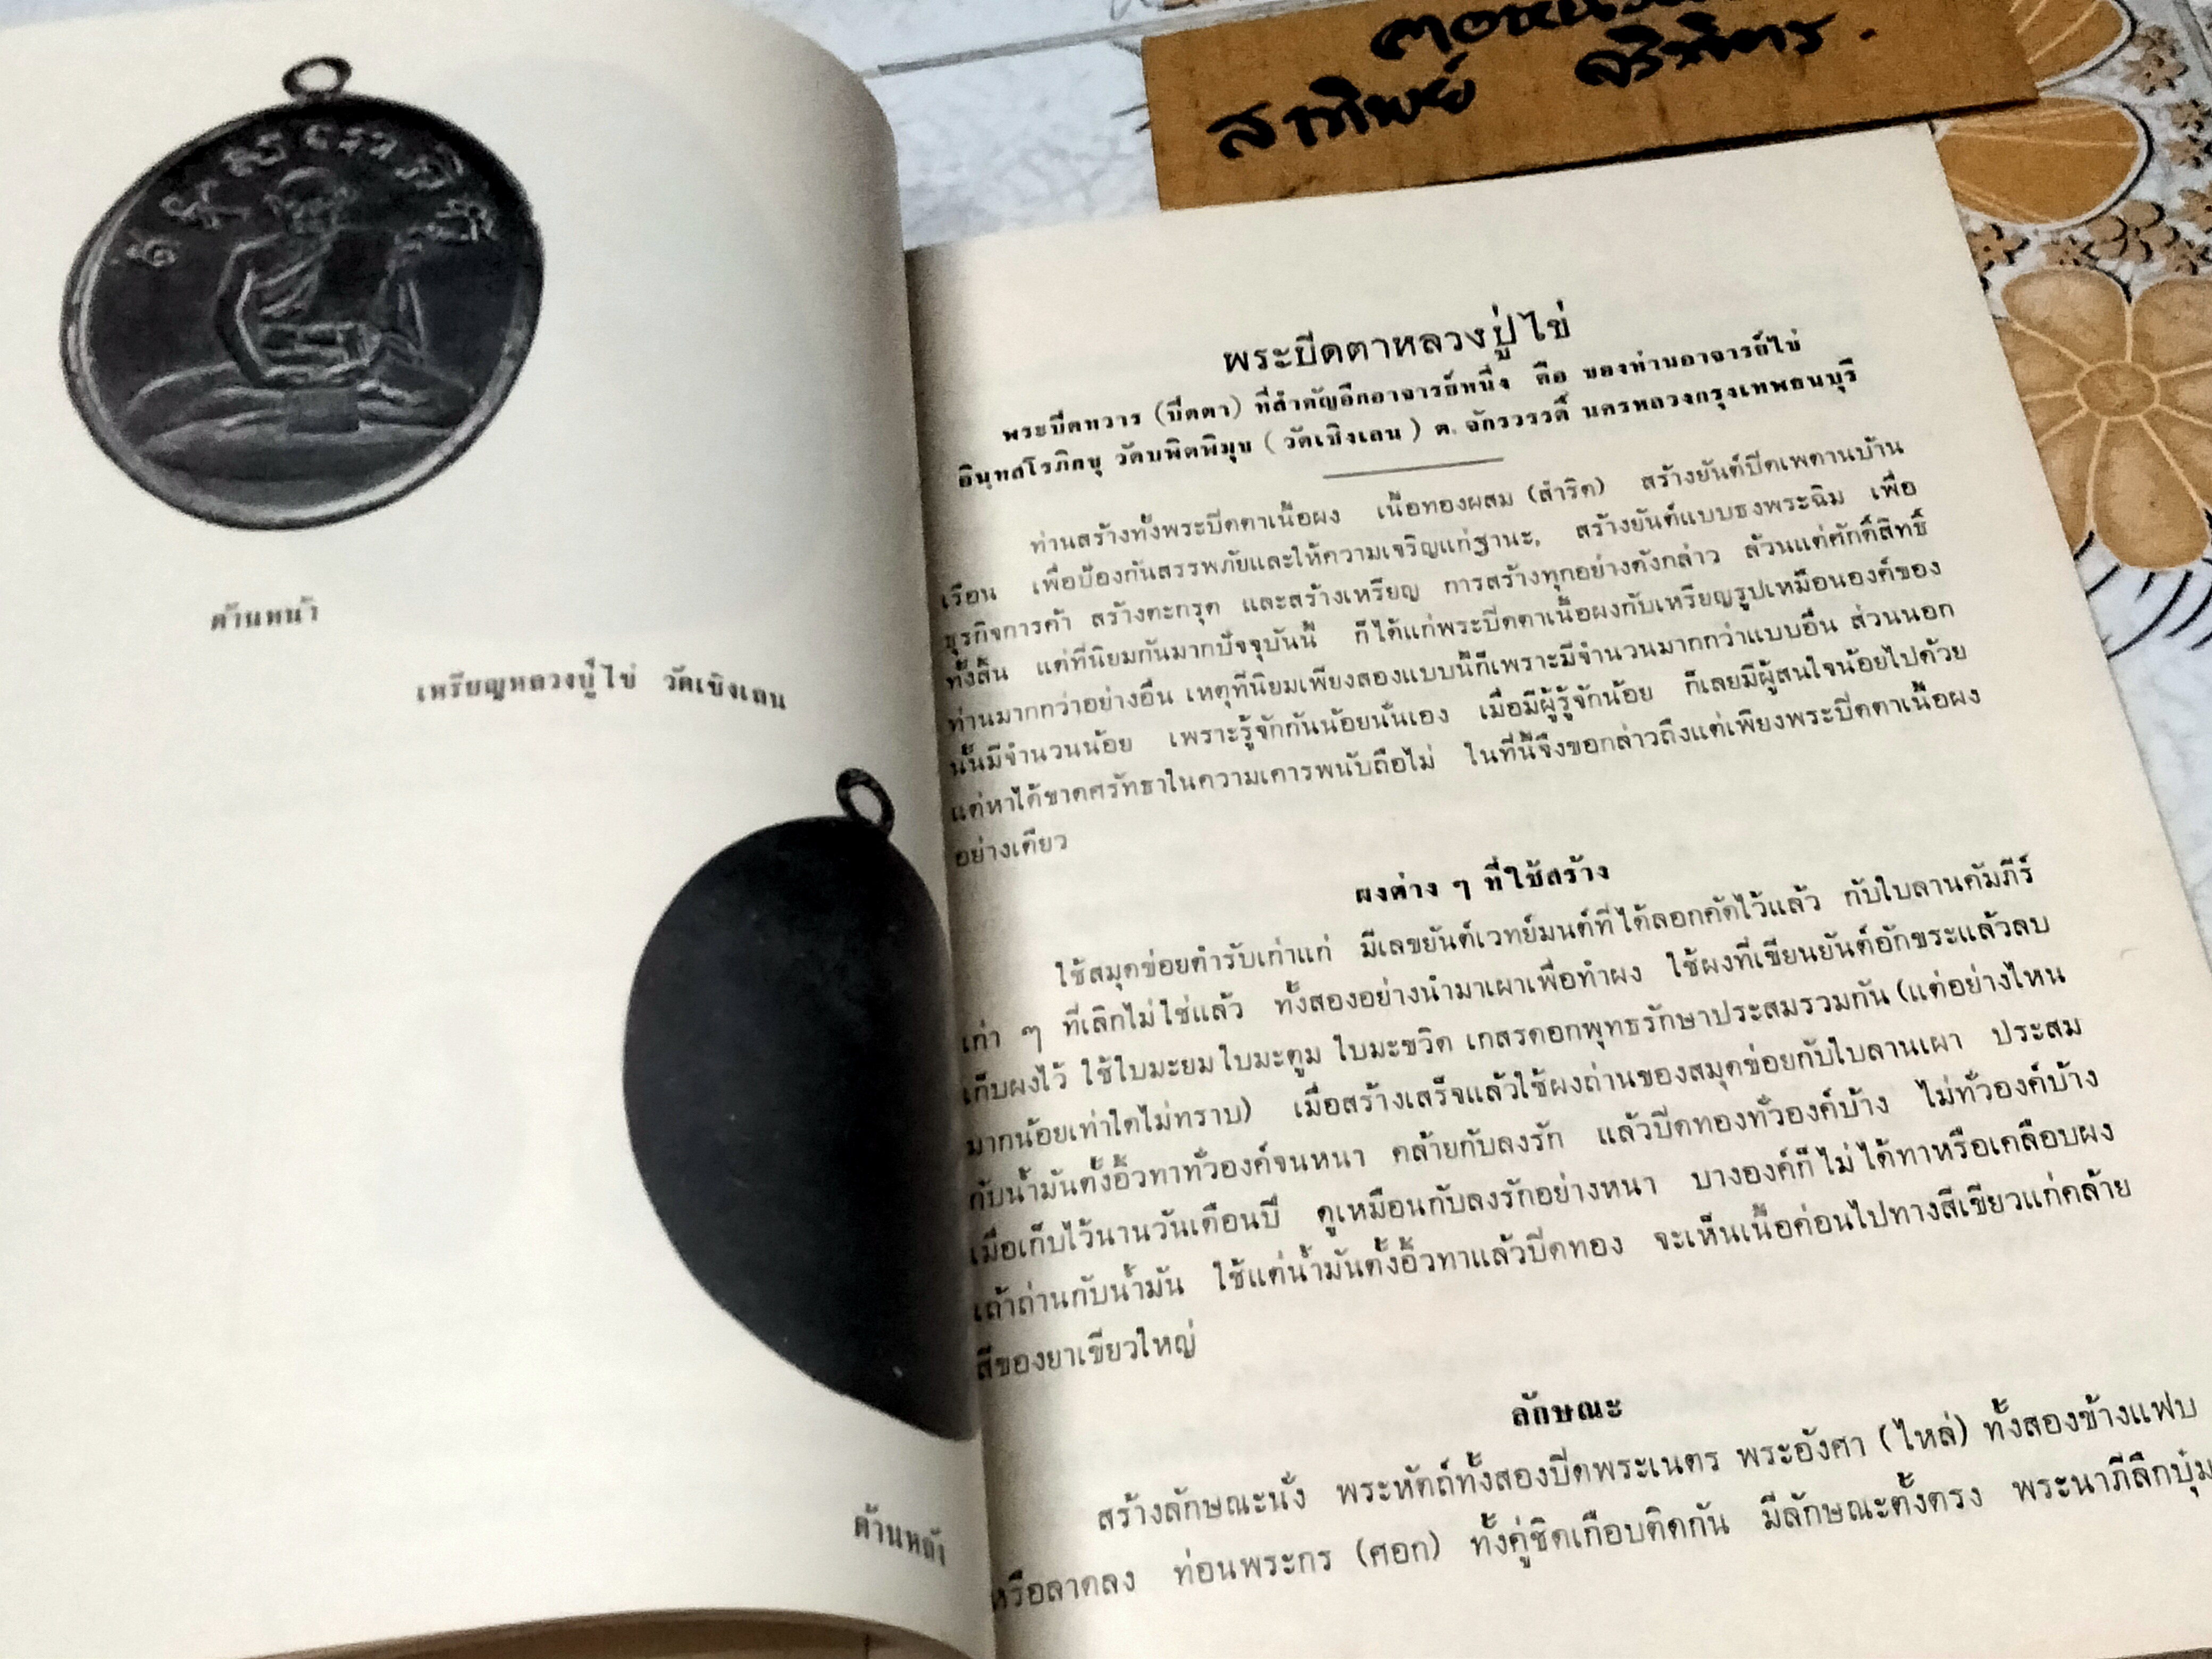 สาทิพย์
ด้านหน้า
เหรียญหลวงปู่ไข่ วัดเชิงเลน
ด้านหลัง
พระปิดตาหลวงปู่ไข่
พระปิดทวาร (ปิดตา) ที่สำคัญอีกอาจารย์หนึ่ง คือ ของท่านอาจารย์ไข่
อินฺทสโรภิกขุ วัดบพิตพิมุข (วัดเชิงเลน) ต. จักรวรรดิ์ นครหลวงกรุงเทพธนบุรี
ท่านสร้างทั้งพระปิดตาเนื้อผง เนื้อทองผสม (สำริด) สร้างยันต์ปิดเพดานบ้าน
เรือน เพื่อป้องกันสรรพภัยและให้ความเจริญแก่ฐานะ, สร้างยันต์แบบธงพระฉิม เพื่อ
ธุรกิจการค้า สร้างตะกรุด และสร้างเหรียญ การสร้างทุกอย่างดังกล่าว ล้วนแต่ศักดิ์สิทธิ์
ทั้งสิ้น แต่ที่นิยมกันมากปัจจุบันนี้ ก็ได้แก่พระปิดตาเนื้อผงกับเหรียญรูปเหมือนองค์ของ
ท่านมากกว่าอย่างอื่น เหตุที่นิยมเพียงสองแบบนี้ก็เพราะมีจำนวนมากกว่าแบบอื่น ส่วนนอก
นั้นมีจำนวนน้อย เพราะรู้จักกันน้อยนั่นเอง เมื่อมีผู้รู้จักน้อย ก็เลยมีผู้สนใจน้อยไปด้วย
แต่หาได้ขาดศรัทธาในความเคารพนับถือไม่ ในที่นี้จึงขอกล่าวถึงแต่เพียงพระปิดตาเนื้อผง
อย่างเดียว
ผงต่าง ๆ ที่ใช้สร้าง
ใช้สมุดข่อยตำรับเก่าแก่ มีเลขยันต์เวทย์มนต์ที่ได้ลอกคัดไว้แล้ว กับใบลานคัมภีร์
เก่า ๆ ที่เลิกไม่ใช่แล้ว ทั้งสองอย่างนำมาเผาเพื่อทำผง ใช้ผงที่เขียนยันต์อักขระแล้วลบ
เก็บผงไว้ ใช้ใบมะยม ใบมะตูม ใบมะขวิด เกสรดอกพุทธรักษาประสมรวมกัน (แต่อย่างไหน
มากน้อยเท่าใดไม่ทราบ) เมื่อสร้างเสร็จแล้วใช้ผงถ่านของสมุดข่อยกับใบลานเผา ประสม
กับน้ำมันตั้งอิ้วทาทั่วองค์จนหนา คล้ายกับลงรัก แล้วปิดทองทั่วองค์บ้าง ไม่ทั่วองค์บ้าง
เมื่อเก็บไว้นานวันเดือนปี ดูเหมือนกับลงรักอย่างหนา บางองค์ก็ไม่ได้ทาหรือเคลือบผง
เถ้าถ่านกับน้ำมัน ใช้แต่น้ำมันตั้งอิ้วทาแล้วปิดทอง จะเห็นเนื้อค่อนไปทางสีเขียวแก่คล้าย
สีของยาเขียวใหญ่
ลักษณะ
สร้างลักษณะนั่ง พระหัตถ์ทั้งสองปิดพระเนตร พระอังศา (ไหล่) ทั้งสองข้างแฟบ
หรือลาดลง ท่อนพระกร (ศอก) ทั้งคู่ชิดเกือบติดกัน มีลักษณะตั้งตรง พระนาภีลึกบุ๋ม